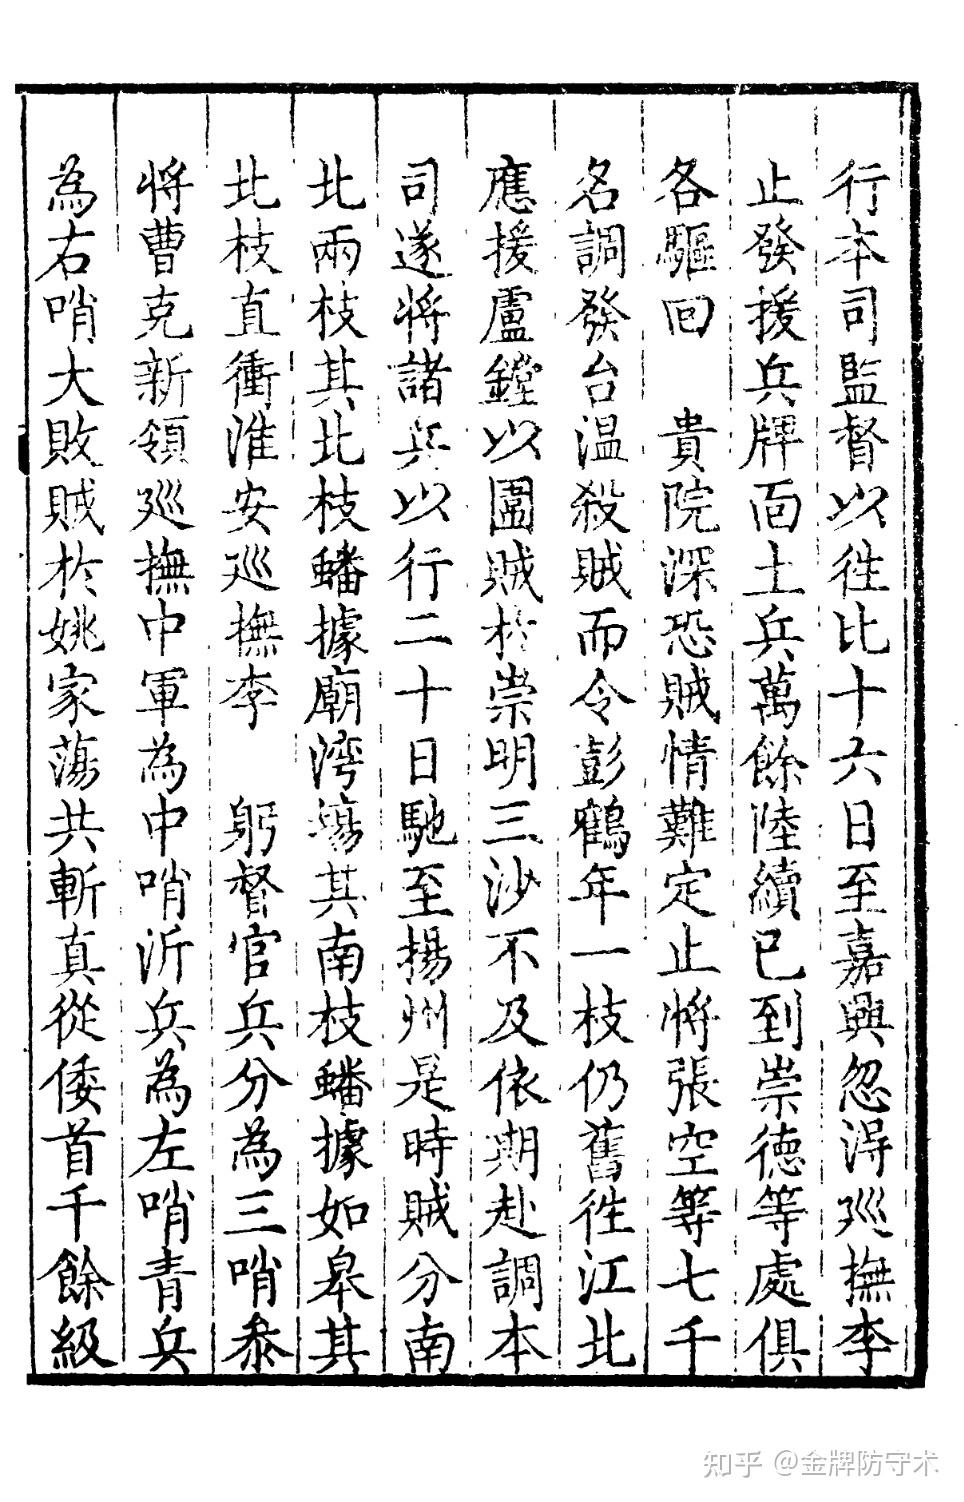 行本司監督以往比十六日至嘉興忽淂廵撫李
止發援兵牌面土兵萬餘陸續已到崇德等處俱
各驅回　貴院深恐賊情難定止將張空等七千
名調發台温殺賊而令彭鶴年一枝仍舊徃江北
應援盧鏜以圍賊於崇明三沙不及依期赴調本
司遂将諸兵以行二十日馳至揚州是時賊分南
北兩枝其北枝蟠據廟湾蕩其南枝蟠據如皋其
北枝直衝淮安廵撫李　躬督官兵分為三哨叅
将曹克新領廵撫中軍為中哨沂兵為左哨青兵
為右哨大敗賊於姚家蕩共斬真從倭首千餘級
知乎 @金牌防守术